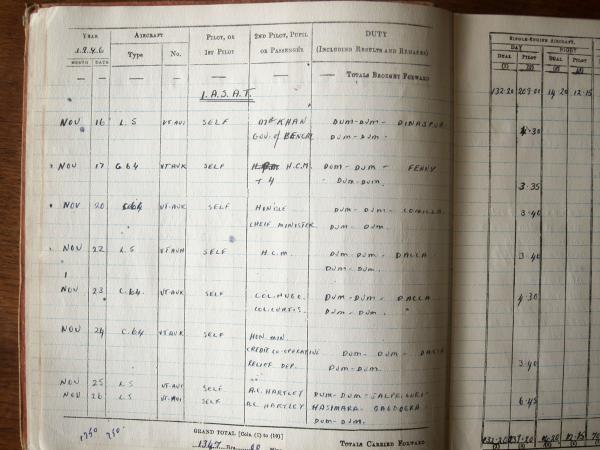 YEAR AIRCRAFT PILOT, OR 2ND PILOT, PUPIL DUTY SINGLE-ENGINE AIRCRAFT
1946 Type No. 1ST PILOT OR PASSENGER (INCLUDING RESULTS AND REMARKS) DAY NIGHT
MONTH DATE DUAL PILOT DUAL PILOT
(1) (2) (3) (4)
— — — — — TOTALS BROUGHT FORWARD
I.A.S.A.T. 132.20 209.01 14.20 12.15
NOV 16 L.5 VT AVI SELF MR KHAN DUM-DUM- DINAJPUR
GOV. of BENGAL DUM-DUM- 4.30
NOV 17 C 64 VT AUK SELF H.C.M. DUM-DUM - FENNY
+ 4 - DUM-DUM. 3.35
NOV 20 C64 VT-AUK SELF HON'BLE DUM-DUM- COMILLA
CHEIF MINISTER DUM-DUM. 3.40
NOV 22 L.5 SELF H.C.M. DUM-DUM- DACCA
DUM-DUM. 3.40
NOV 23 C.64. VT-AUK SELF DUM-DUM- DACCA
COL.CURTIS. DUM-DUM. 4.30
NOV 24 C.64 VT AUK SELF HON. MIN.
CREDIT CO-OPERATIVE DUM-DUM- DACCA
RELIEF DEP. DUM-DUM. 3.40
NOV 25 L.5 VT-AVI SELF A.C. HARTLEY DUM-DUM-
NOV 26 L.5 VT-AVI SELF A.C. HARTLEY HASIMARA- BAGDOGRA 6.45
DUM-DUM.
GRAND TOTAL [Cols. (1) to (10)]
1347 Hrs. 00 TOTALS CARRIED FORWARD 132.20 14.20 12.15